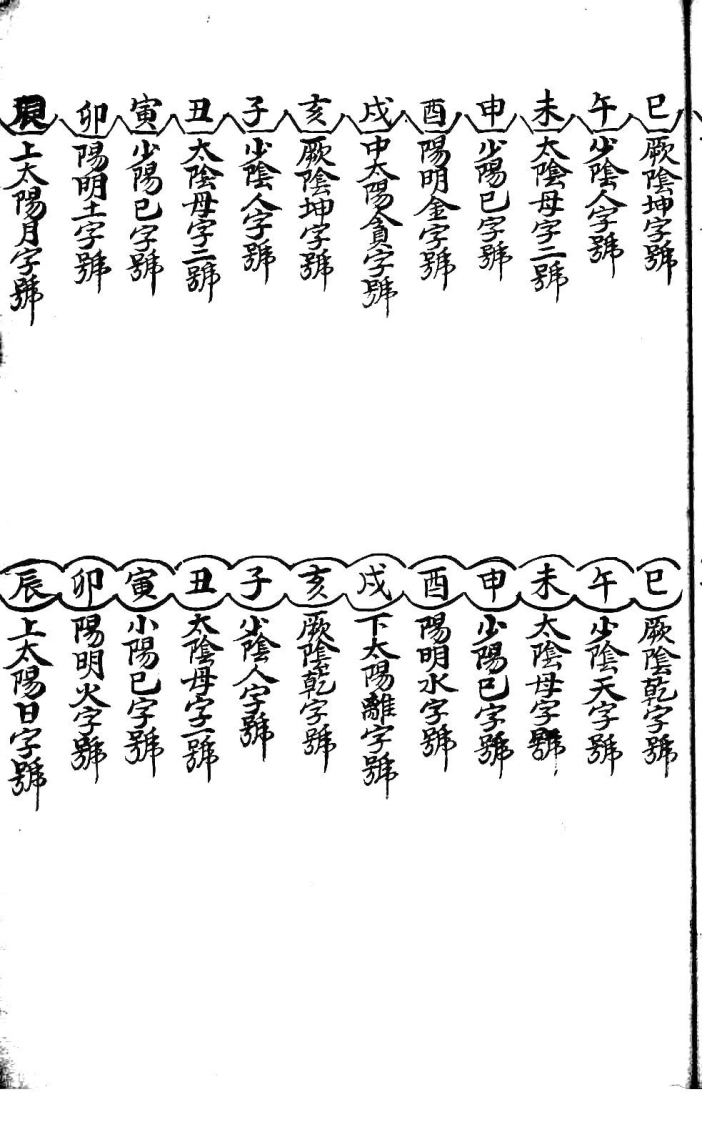 巳 厥陰坤字號
午 少陰人字號
未 太陰母字二號
申 少陽巳字號
酉 陽明金字號
戌 中太陽貪字號
亥 厥陰坤字號
子 少陰人字號
丑 太陰母字二號
寅 少陽巳字號
卯 陽明土字號
辰 上太陽月字號
巳 厥陰乾字號
午 少陰天字號
未 太陰母字號
申 少陽巳字號
酉 陽明水字號
戌 下太陽離字號
亥 厥陰乾字號
子 少陰人字號
丑 太陰母字一號
寅 小陽巳字號
卯 陽明火字號
辰 上太陽日字號